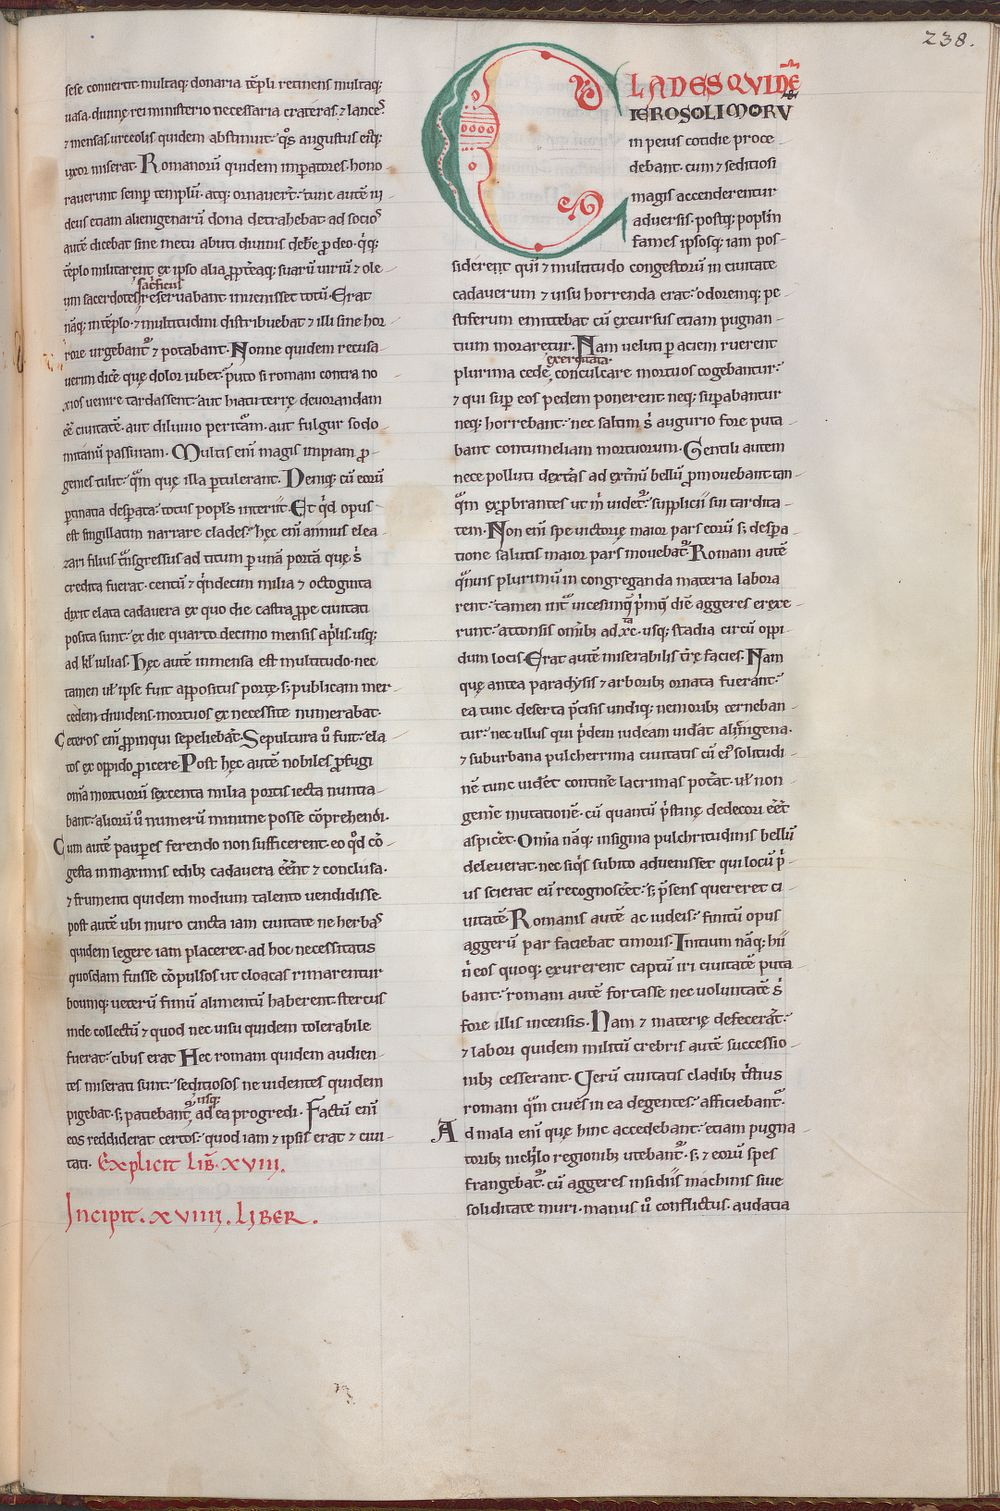 238.
sese conuertit. multaq; donaria tẽpli retinens multaq;
uasa diuinę rei ministerio necessaria crateras. ⁊ lances
⁊ mensas. urceolis quidem abstinuit. q̃s augustus eiq;
uxor miserat. Romanorũ quidem imp̃atores. hono
rauerunt semp̃ templũ. atq; ornauert̃. tunc autẽ iu
deus etiam alienigenarũ dona detrahebat. ad socios
autẽ dicebat sine metu abuti diuinis deb̃e p̱ deo. q̃q;
tẽplo militarent ex ipso ali. a p̱pt̃eaq; suarũ uiriũ ⁊ ole
sacrificiis
um sacerdotes reseruabant inuenisset totũ. Erat
nãq; in tẽplo. ⁊ multitudini distribuebat ⁊ illi sine hor
rore urgebant̃ ⁊ potabant. Nonne quidem recusa
uerim dicẽ quę dolor iubet. puto si romani contra no
xios uenire tardassent. aut hiatu terrę deuorandam
eẽ ciuitatẽ. aut diluuio peritãm. aut fulgur sodo
mitanũ passuram. Multis enĩ magis impiam p̱
geniẽ tulit. q̃m quę illa p̱tulerant. Deniq; cũ eorũ
p̱tinatia despata. totus popl̃s interiit. Et q̃d opus
est singillatim narrare clades. hęc enĩ annius elea
zari filius tñsgressus ad titum p̱ unã portã quę s̃
credita fuerat. centũ ⁊ q̃ndecim milia ⁊ octoginta
dixit elata cadauera ex quo die castra p̱pe ciuitati
posita sunt. ex die quarto decimo mensis ap̃lis usq;
ad kl̃ iulias. Hęc autẽ inmensa est multitudo. nec
tamen ul̃ ipse fuit appositus portę. s; publicam mer
cedem diuidens. mortuos ex necessite numerabat.
Ceteros enĩ p̱pinqui sepeliebãt. Sepultura ũ fuit. ela
tos ex oppido p̱icere. Post hęc autẽ nobiles p̱fugi
om̃ia mortuorũ sexcenta milia portis iecta nuntia
bant. aliorũ ũ numerũ minime posse cõprehendi.
Cum autẽ paup̱es ferendo non sufficerent. eo q̃d cõ
gesta in maximis edib; cadauera eẽnt ⁊ conclusa.
⁊ frumenti quidem modium talento uendidisse.
post autẽ ubi muro cincta iam ciuitate ne herbas
quidem legere iam placeret. ad hoc necessitatis
quosdam fuisse cõpulsos ut cloacas rimarentur
boumq; ueterũ fimũ alimentũ haberent. stercus
inde collectũ ⁊ quod nec uisu quidem tolerabile
fuerat. cibus erat. Hec romani quidem audien
tes miserati sunt. seditiosos ne uidentes quidem
usq;
pigebat. s; patiebant̃ ad ea progredi. Factũ enĩ
eos reddiderat certos. quod iam ⁊ ipsis erat ⁊ ciui
tati. Explicit Lib̃. XVIII.
Incipit. XVIIII. LIBER.
CLADES QVIDẼ
IEROSOLIMORV
in peius cotidie proce
debant. cum ⁊ seditiosi
magis accenderentur
aduersis. postq; poplm̃
fames ipsosq; iam pos
siderent qui ⁊ multitudo congestorũ in ciuitate
cadauerum ⁊ uisu horrenda erat. odoremq; pe
stiferum emittebat cũ excursus etiam pugnan
tium moraretur. Nam ueluti p̱ aciem ruerent
exercitata.
plurima cede conculcare mortuos cogebantur.
⁊ qui sup̱ eos pedem ponerent neq; sup̱abantur
neq; horrebant. nec saltim s̃ augurio fore puta
bant contumeliam mortuorum. Gentili autem
nece polluti dext̃as ad ext̃nũ bellũ p̱mouebant. tan
q̃m exp̱brantes ut m̃ uidet̃. supplicii sui tardita
tem. Non enĩ spe uictorię maior pars eorũ s; despa
tione salutis maior pars mouebat̃. Romani autẽ
q̃nuis plurimũ in congreganda materia labora
rent. tamen int̃ uicesimũq; primũq; diẽ aggeres erexe
runt. attonsis om̃ib; ad xc. usq; stadia circũ oppi
dum locis. Erat autẽ miserabilis t̃rę facies. Nam
quę antea paradysis ⁊ arborib; ornata fuerant.
ea tunc deserta p̃cisis undiq; nemorib; cerneban
tur. nec ullus qui p̃dem iudeam uid̃at alienigena.
⁊ suburbana pulcherrima ciuitatis cũ ei᾽ solitudi
nẽ tunc uideret continẽ lacrimas pot̃at. ul̃ non
gemẽ mutationẽ. cũ quantũ p̃stinę dedecori eẽt
aspicẽt. Om̃ia nãq; insignia pulchritudinis bellũ
deleuerat. nec siq̃s subito aduenisset qui locũ p̃
us scierat eũ recognoscẽt. s; p̃sens quereret ci
uitatẽ. Romanis autẽ ac iudeis. finitũ opus
aggerũ par faciebat timoris. Initium nãq; hii
ñ eos quoq; exurerent captũ iri ciuitatẽ puta
bant. romani autẽ fortasse nec uoluntatẽ s̃
fore illis incensis. Nam ⁊ materię defecerãt.
⁊ labori quidem militũ crebris autẽ successio
nib; cesserant. Cerũ ciuitatis cladib; tristius
romani q̃m ciues in ea degentes. afficiebant̃.
Ad mala enĩ quę hinc accedebant. etiam pugna
torib; nichilo regionib; utebant̃. s; ⁊ eorũ spes
frangebat̃. cũ aggeres insidiis machinis siue
soliditate muri. manus ũ conflictus. audatia